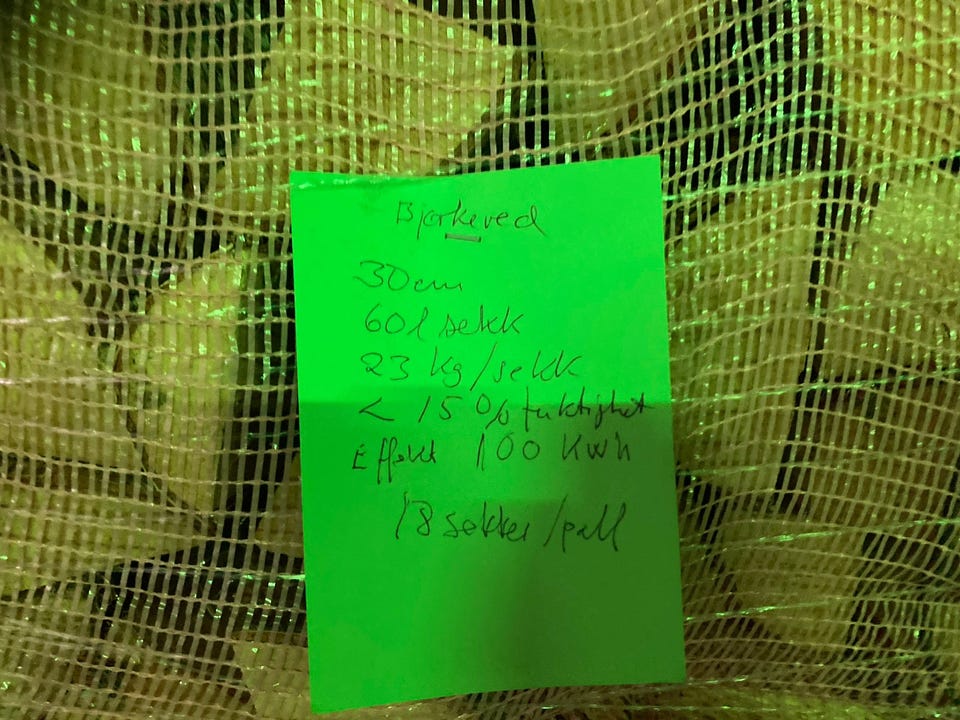 Bjørkeved
30cm
60l sekk
23 kg/sekk
< 15 % fuktighet
Effekt 100 Kwh
18 sekker/pall